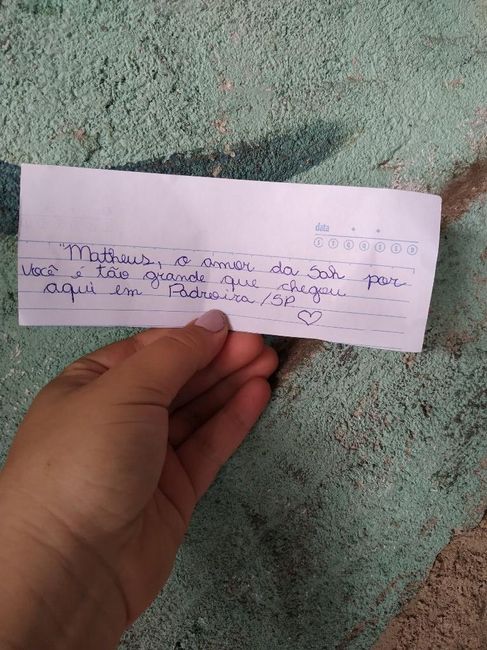 data
S T Q Q S S D
"Matheus, o amor da Sah por
você é tão grande que chegou
aqui em Padroira/SP